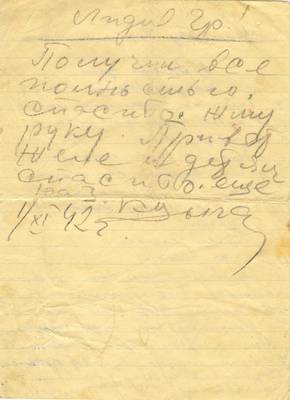 Лидия Гр.!
Получил все
полностью,
спасибо. Жму
руку. Привет
Жене и детям
спасибо еще
раз.
1/XI 42 г.